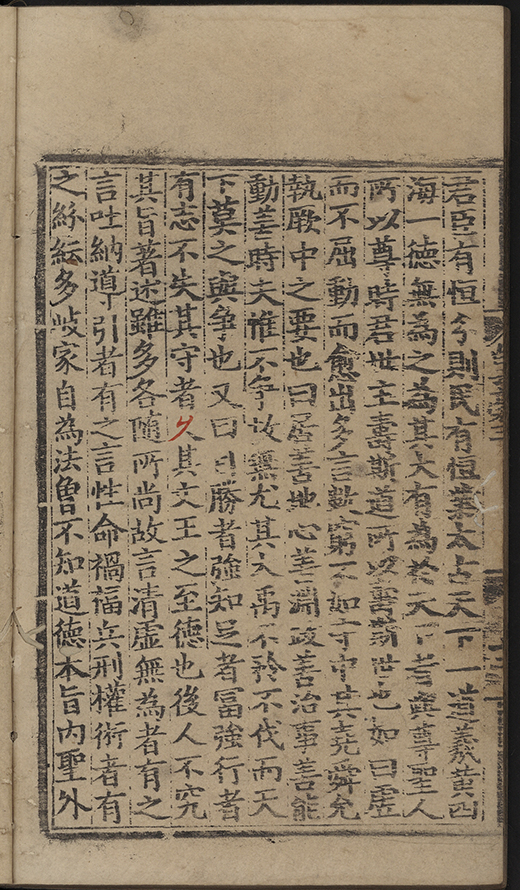 君臣有恒分則民有恒業太古天下一道義黃四
海一德無為之為其大有為於天下者與尊聖人
所以尊時君世主壽斯道所以壽斯世也如曰虛
而不屈動而愈出多言數窮不如守中其堯舜允
執厥中之要也曰居善地心善淵政善治事善能
動善時夫惟不爭故無尤其大禹不矜不伐而天
下莫之與爭也又曰自勝者強知足者富強行者
有志不失其守者久其文王之至德也後人不究
其旨著述雖多各隨所尚故言清虛無為者有之
言吐納導引者有之言性命禍福兵刑權術者有
之紛紜多歧家自為法曾不知道德本旨內聖外